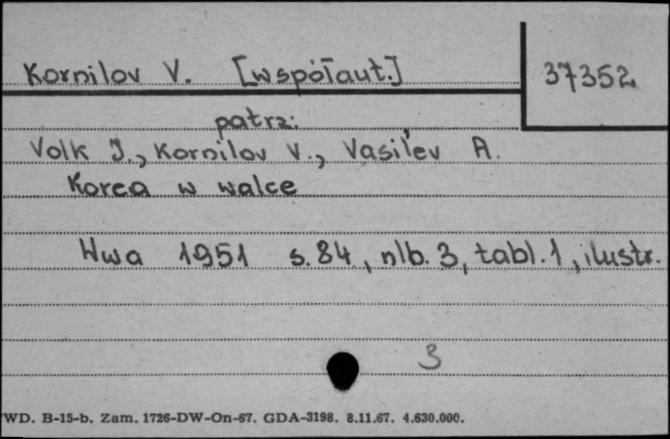 Kornilov V. [współaut.] 37352
patrz:
Volk I., Kornilov V., Vasil'ev A.
Korea w walce
Wwa 1951 s. 84, nlb. 3, tabl. 1, ilustr.
3
WD. B-15-b. Zam. 1726-DW-On-67. GDA-3198. 8.11.67. 4.630.000.